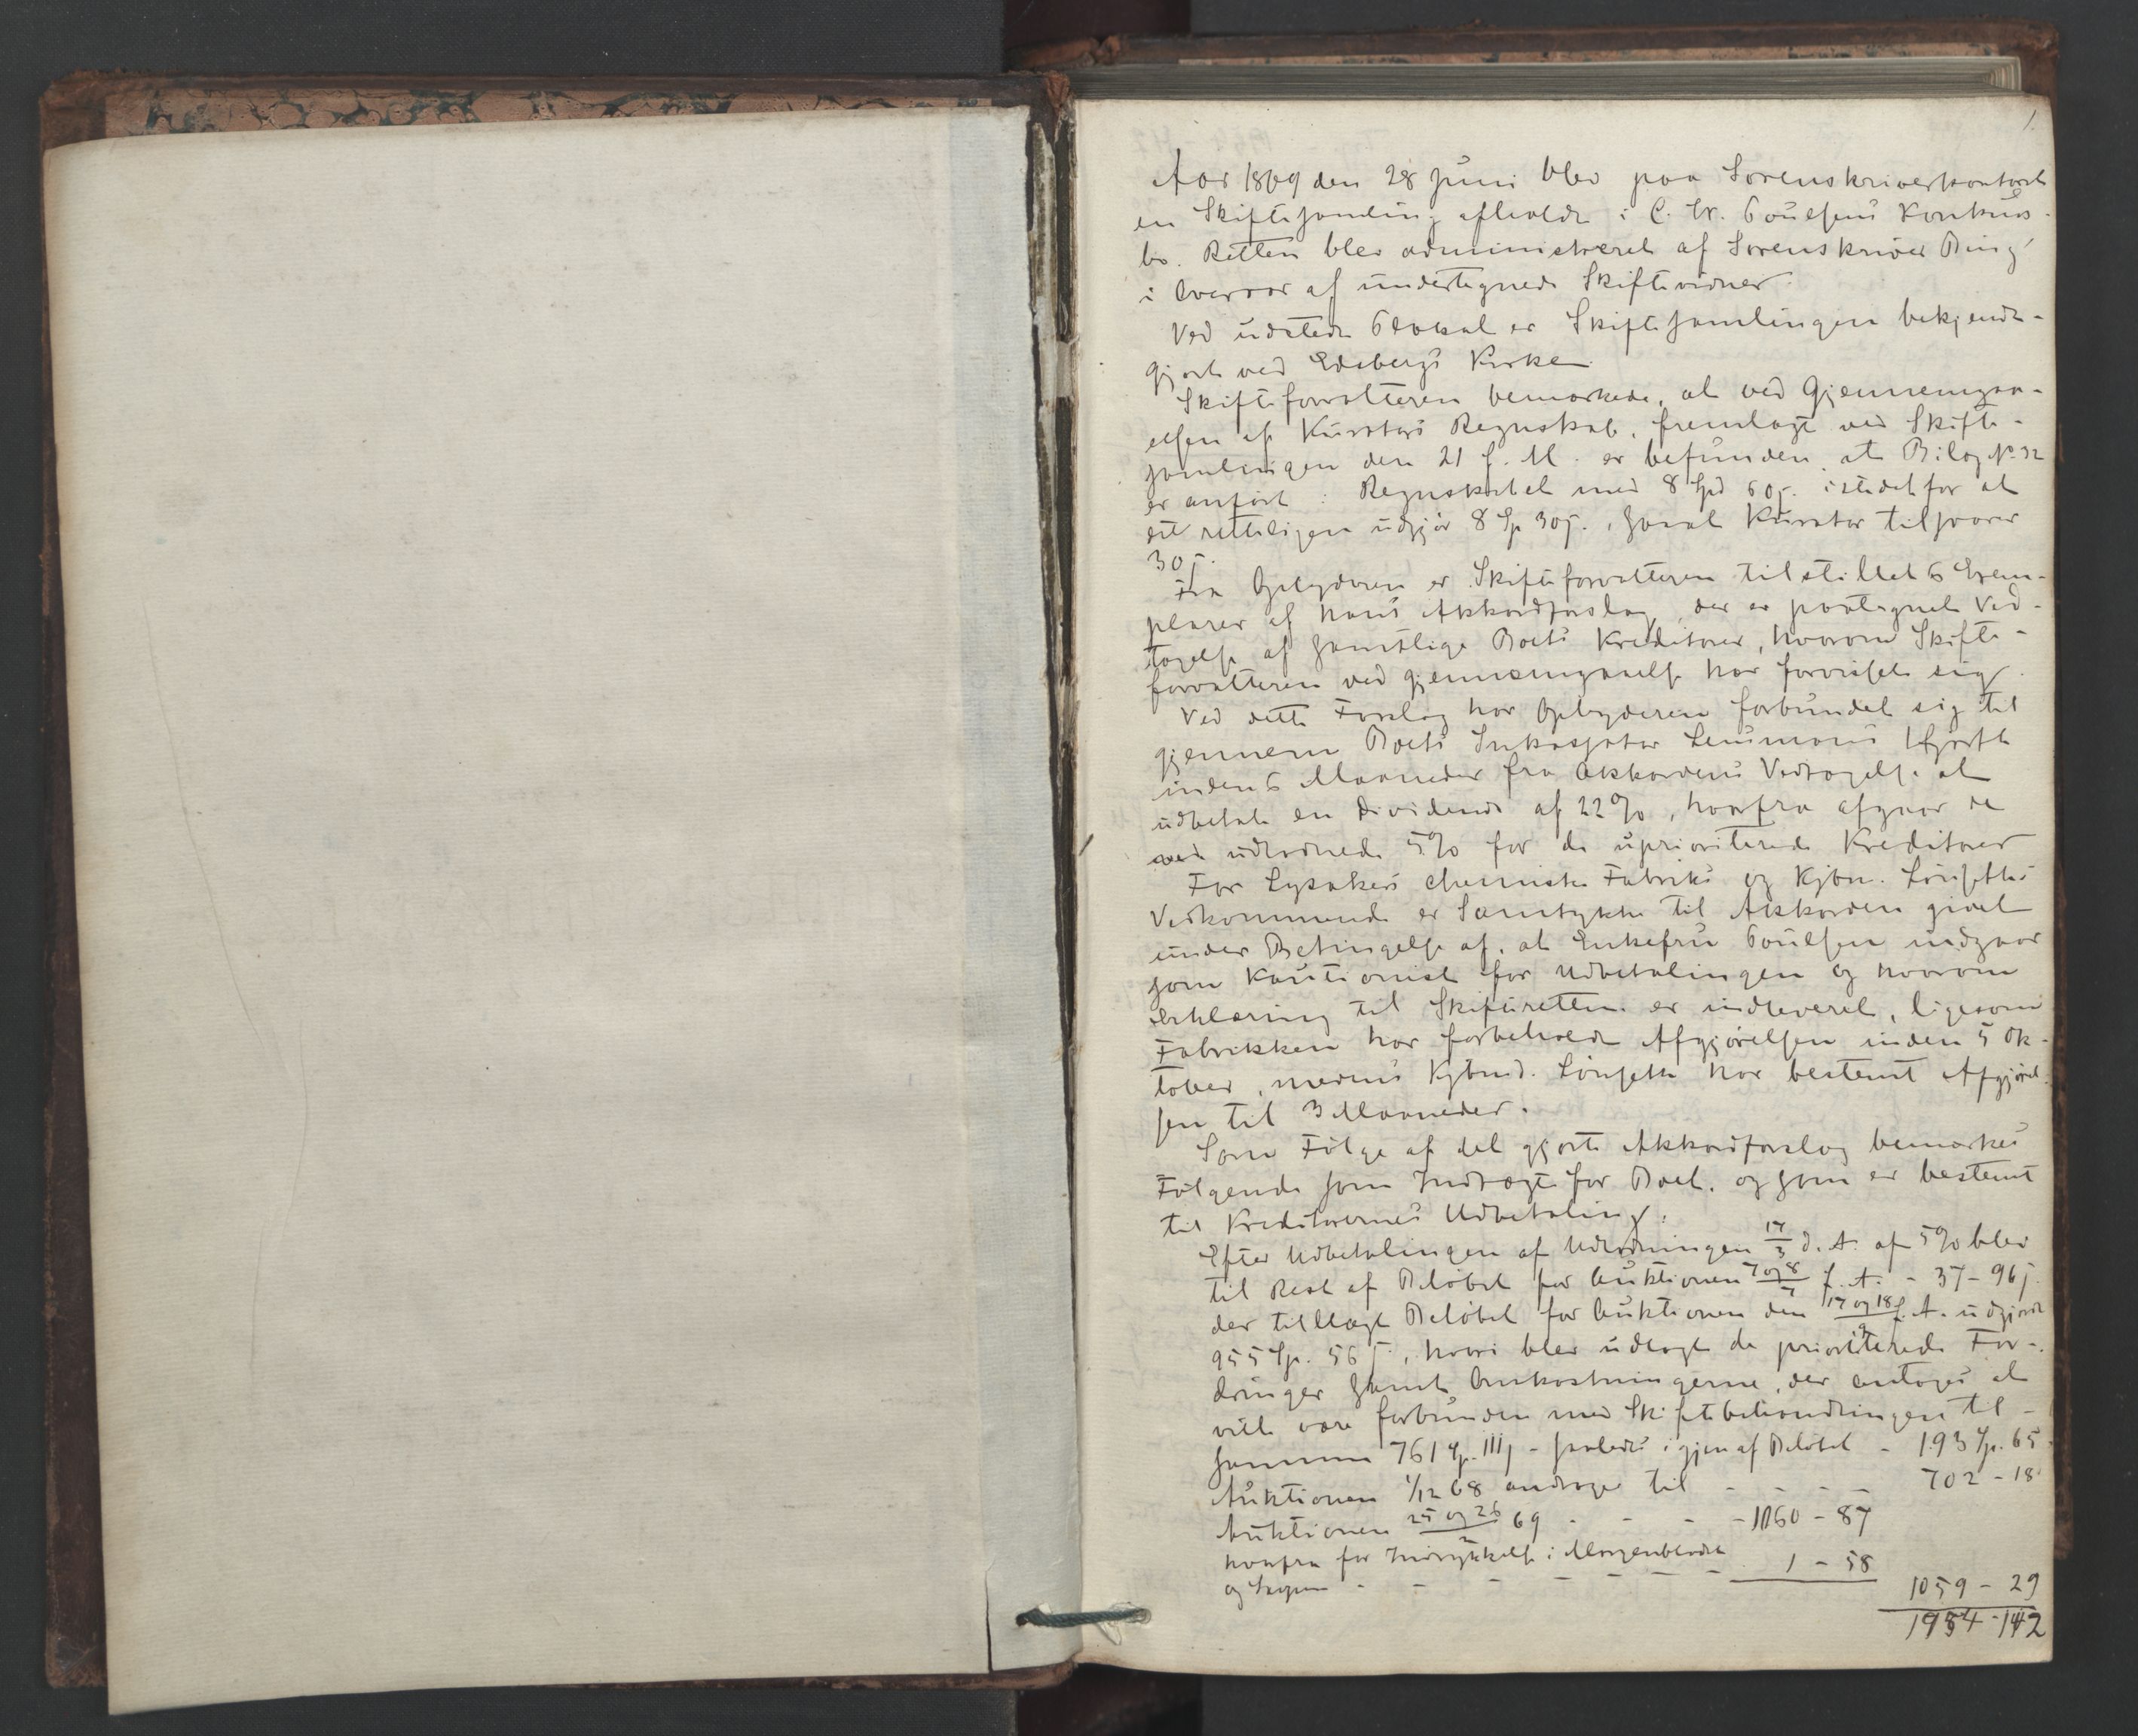 1.
Aar 1869 den 28 Juni blev paa Sorenskriverkontoret
en Skiftesamling afholdt i C. W. Poulsens Konkurs-
bo. Retten blev administreret af Sorenskriver Bing
i Overvær af undertegnede Skiftevidner.
Ved udstedt Plakat er Skiftesamlingen bekjendt-
gjort ved Edsbergs Kirke.
Skifteforvalteren bemærkede, at ved Gjennemgaa-
elsen af Kurators Regnskab, fremlagt ved Skifte-
samlingen den 21 f. M. er befunden, at Bilag No 32
er anført i Regnskabet med 8 Spd 60 s. istedetfor at
det retteligen udgjør 8 Sp 30 s., saaat Kurator tilsvarer
30 s.
Fra Opbyderen er Skifteforvalteren tilstillet 6 Exem-
plarer af hans Akkordforslag, der er paategnet Ved-
tagelse af samtlige Boets Kreditorer, hvorom Skifte-
forvalteren ved gjennemgaaelse har forvisset sig.
Ved dette Forslag har Opbyderen forbundet sig til
gjennem Boets Inkassator Lensmand Hjorth
inden 6 Maaneder fra Akkordens Vedtagelse at
udbetale en Dividende af 22 %, hvorfra afgaar de
udlodnede 5 % for de uprioriterede Kreditorer
For Lysakers chemiske Fabriks og Kjbm. Lønseths
Vedkommende er Samtykke til Akkorden givet
under Betingelse af, at Enkefru Poulsen indgaar
som Kautionist for Udbetalingen og hvorom
Erklæring til Skifteretten er indleveret, ligesom
Fabrikken har forbeholdt Afgjørelsen inden 5 Ok-
tober, medens Kjbmd. Lønseth har bestemt Afgjørel-
sen til 3 Maaneder.
Som Følge af det gjorte Akkordforslag bemærkes
Følgende som Indtægt for Boet, og som er bestemt
til Kreditorernes Udbetaling:
Efter Udbetalingen af Udlodningen 17/3 d. A. af 5 % blev
til Rest af Beløbet for Auktionen 7 og 8/7 f. A. - 37 - 96 s.
der tillagt Beløbet for Auktionen den 17 og 18/9 f. A. udgjorde
955 Sp. 56 s., hvori blev udlagt de prioriterede For-
dringer samt Omkostningerne, der antages at
ville være forbunden med Skiftebehandlingen til-
sammen 761 Sp. 111 s - saaledes igjen af Beløbet - 193 Sp. 65
Auktionen 1/12 68 androg til - - - - 702 - 18
Auktionen 25 og 26/2 69 - - - - 1060 - 87
hvorfra for Indrykkelse i Morgenbladet
og - - - - - - 1 - 58
1059 - 29
1954 - 112